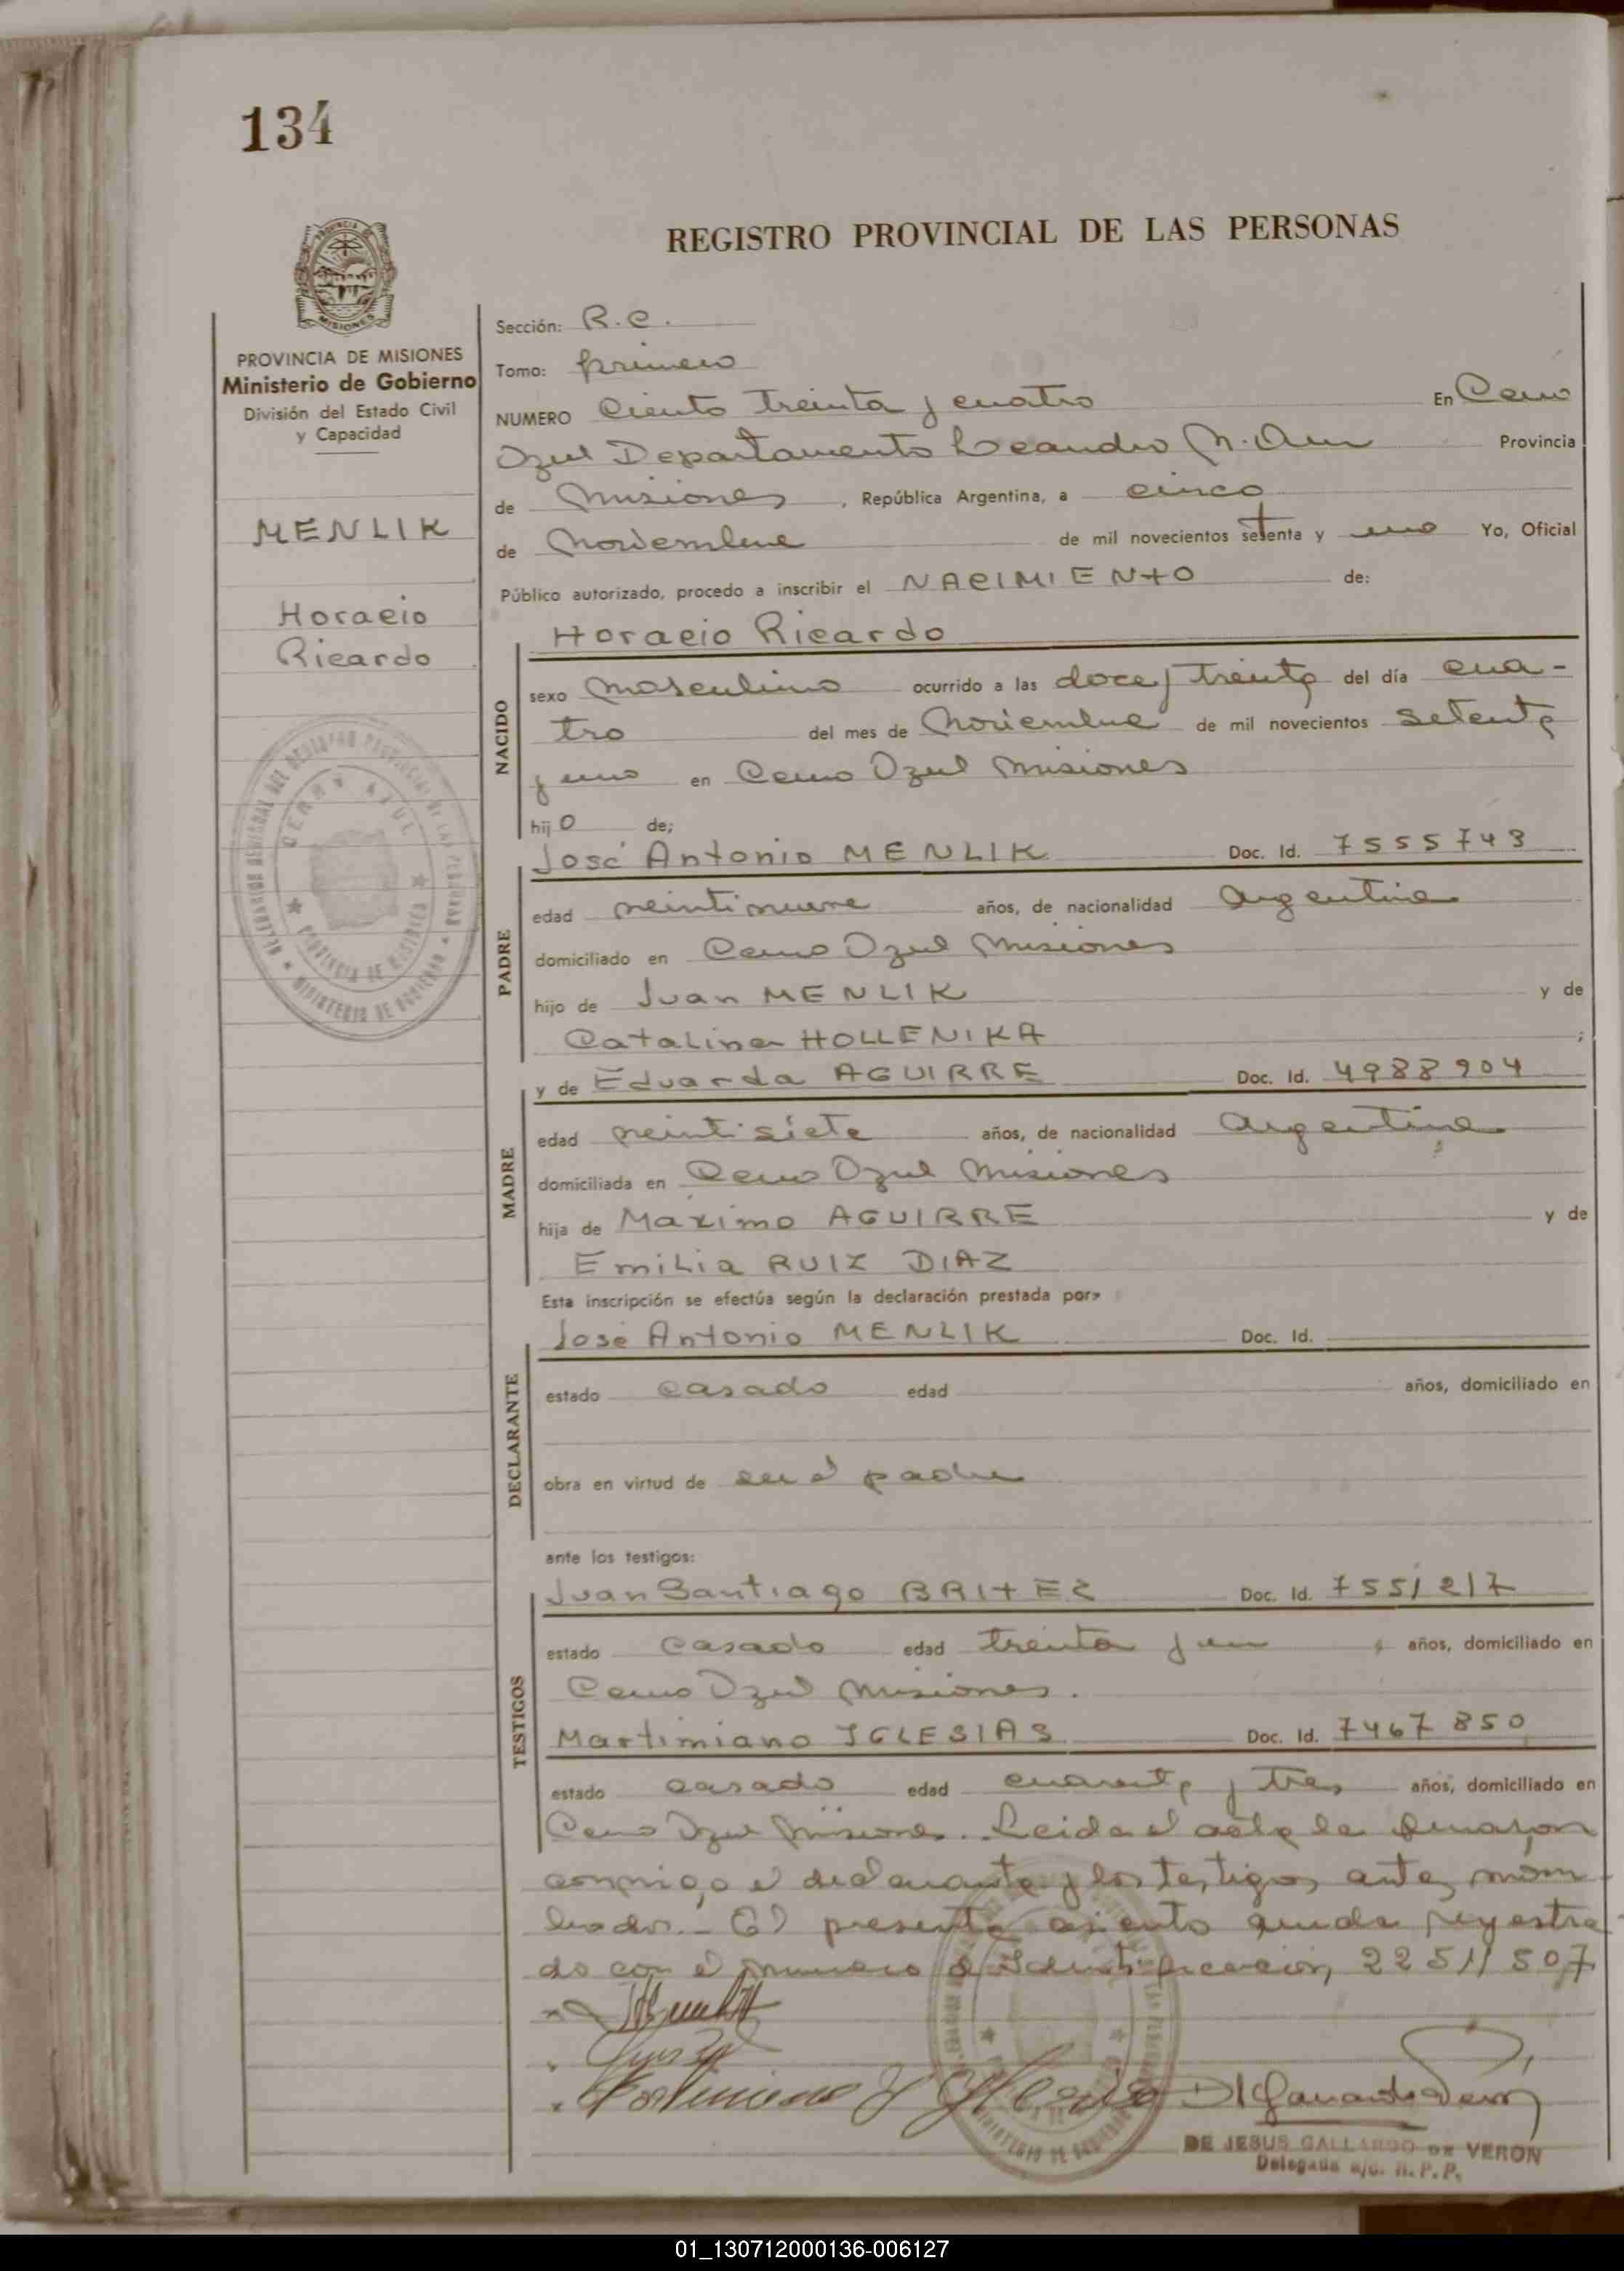 134
REGISTRO PROVINCIAL DE LAS PERSONAS
PROVINCIA DE MISIONES
Ministerio de Gobierno
División del Estado Civil
y Capacidad
MENLIK
Horacio
Ricardo
Sección: R.C.
Tomo: primero
NUMERO Ciento treinta y cuatro En Cerro
Azul Departamento Leandro N. Alem Provincia
de Misiones, República Argentina, a cinco
de Noviembre de mil novecientos setenta y uno Yo, Oficial
Público autorizado, procedo a inscribir el NACIMIENTO de:
Horacio Ricardo
NACIDO
sexo masculino ocurrido a las doce y treinta del día cua-
tro del mes de Noviembre de mil novecientos setenta
y uno en Cerro Azul Misiones
hijo de;
José Antonio MENLIK Doc. Id. 7555743
PADRE
edad veintinueve años, de nacionalidad Argentina
domiciliado en Cerro Azul Misiones
hijo de Juan MENLIK y de
Catalina HOLLENIKA ;
y de Eduarda AGUIRRE Doc. Id. 4988904
MADRE
edad veintisiete años, de nacionalidad Argentina
domiciliada en Cerro Azul Misiones
hija de Maximo AGUIRRE y de
Emilia RUIZ DIAZ
Esta inscripción se efectúa según la declaración prestada por:
José Antonio MENLIK Doc. Id.
DECLARANTE
estado casado edad años, domiciliado en
obra en virtud de ser el padre
ante los testigos:
Juan Santiago BRITEZ Doc. Id. 7551217
TESTIGOS
estado casado edad treinta y un años, domiciliado en
Cerro Azul Misiones.
Martimiano IGLESIAS Doc. Id. 7467850
estado casado edad cuarenta y tres años, domiciliado en
Cerro Azul Misiones. Leida el acta la firmaron
conmigo el declarante y los testigos antes nom
brados.- El presente asiento queda registra
do con el numero de Identificación, 22511507
DE JESUS GALLARDO DE VERON
Delegada a/c. R.P.P.
01_130712000136-006127